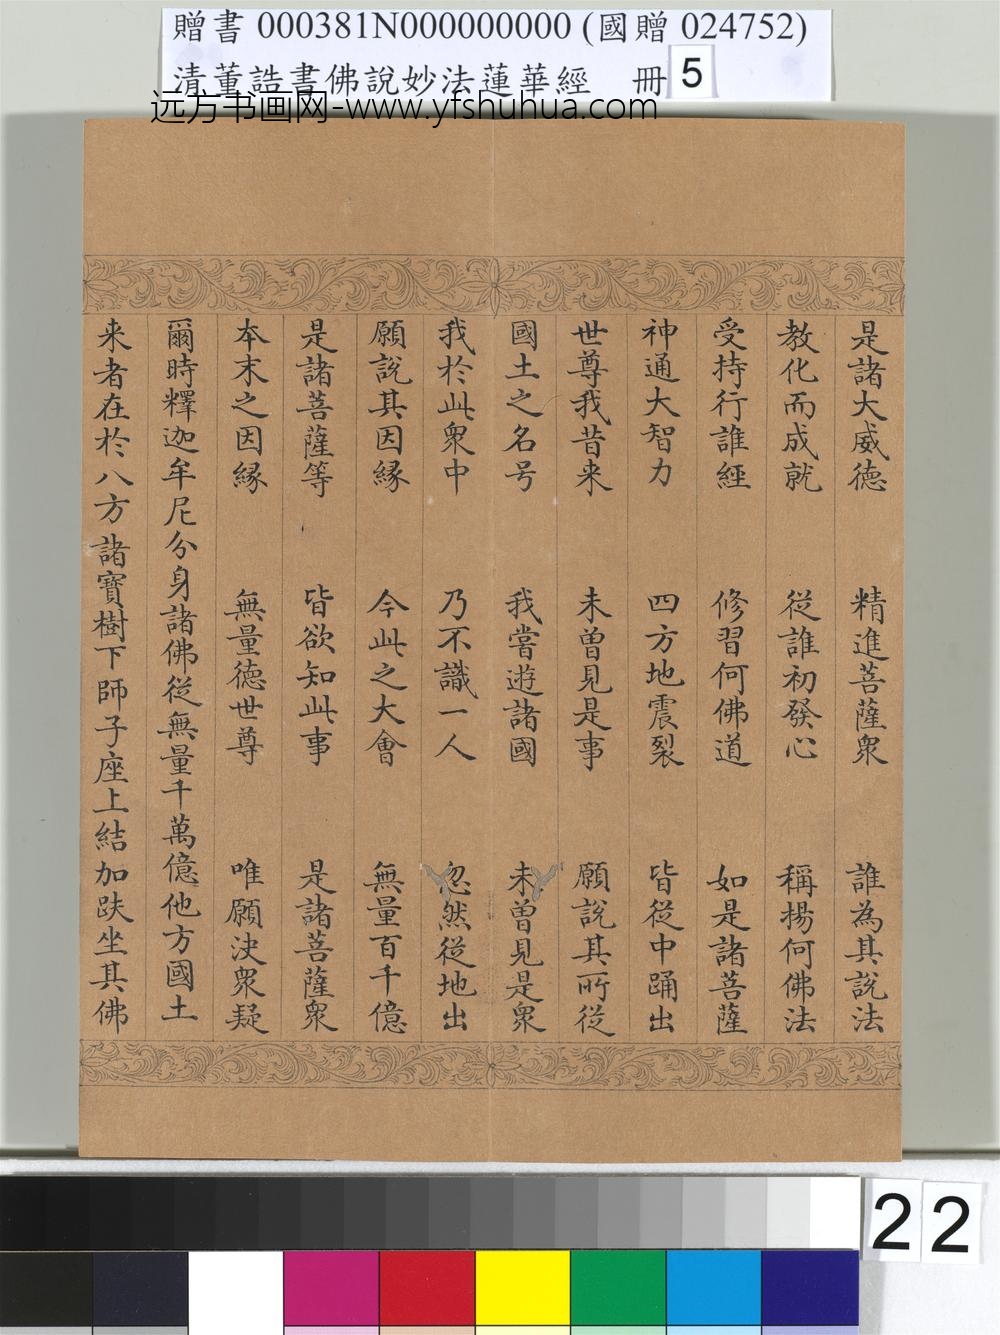 贈書 000381N000000000 (國贈 024752)
清董誥書佛說妙法蓮華經 冊 5
远方书画网-www.yfshuhua.com
是諸大威德 精進菩薩衆 誰為其說法
教化而成就 從誰初發心 稱揚何佛法
受持行誰經 修習何佛道 如是諸菩薩
神通大智力 四方地震裂 皆從中踊出
世尊我昔来 未曽見是事 願說其所從
國土之名号 我嘗遊諸國 未曽見是衆
我於此衆中 乃不識一人 忽然從地出
願說其因縁 今此之大會 無量百千億
是諸菩薩等 皆欲知此事 是諸菩薩衆
本末之因縁 無量德世尊 唯願決衆疑
爾時釋迦牟尼分身諸佛從無量千萬億他方國土
来者在於八方諸寶樹下師子座上結加趺坐其佛
22